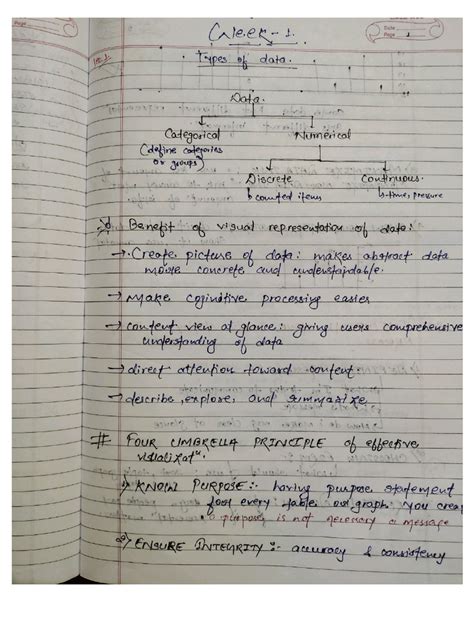 Week-1.
Types of data.
Data.
Categorical Numerical
(define categories
or groups)
Discrete Continuous
↳ counted items ↳ time, pressure
Benefit of visual representation of data:
→ Create picture of data: makes abstract data
more concrete and understandable.
→ Make coginitive processing easier
→ content view at glance: giving users comprehensive
understanding of data
→ direct attention toward content.
→ describe, explore, and summarize
# FOUR UMBRELLA PRINCIPLE of effective
visualizatⁿ.
1) KNOW PURPOSE:- having purpose statement
for every table, or graph you creat
purpose is not necessary a message
2) ENSURE INTEGRITY:- accuracy & consistency